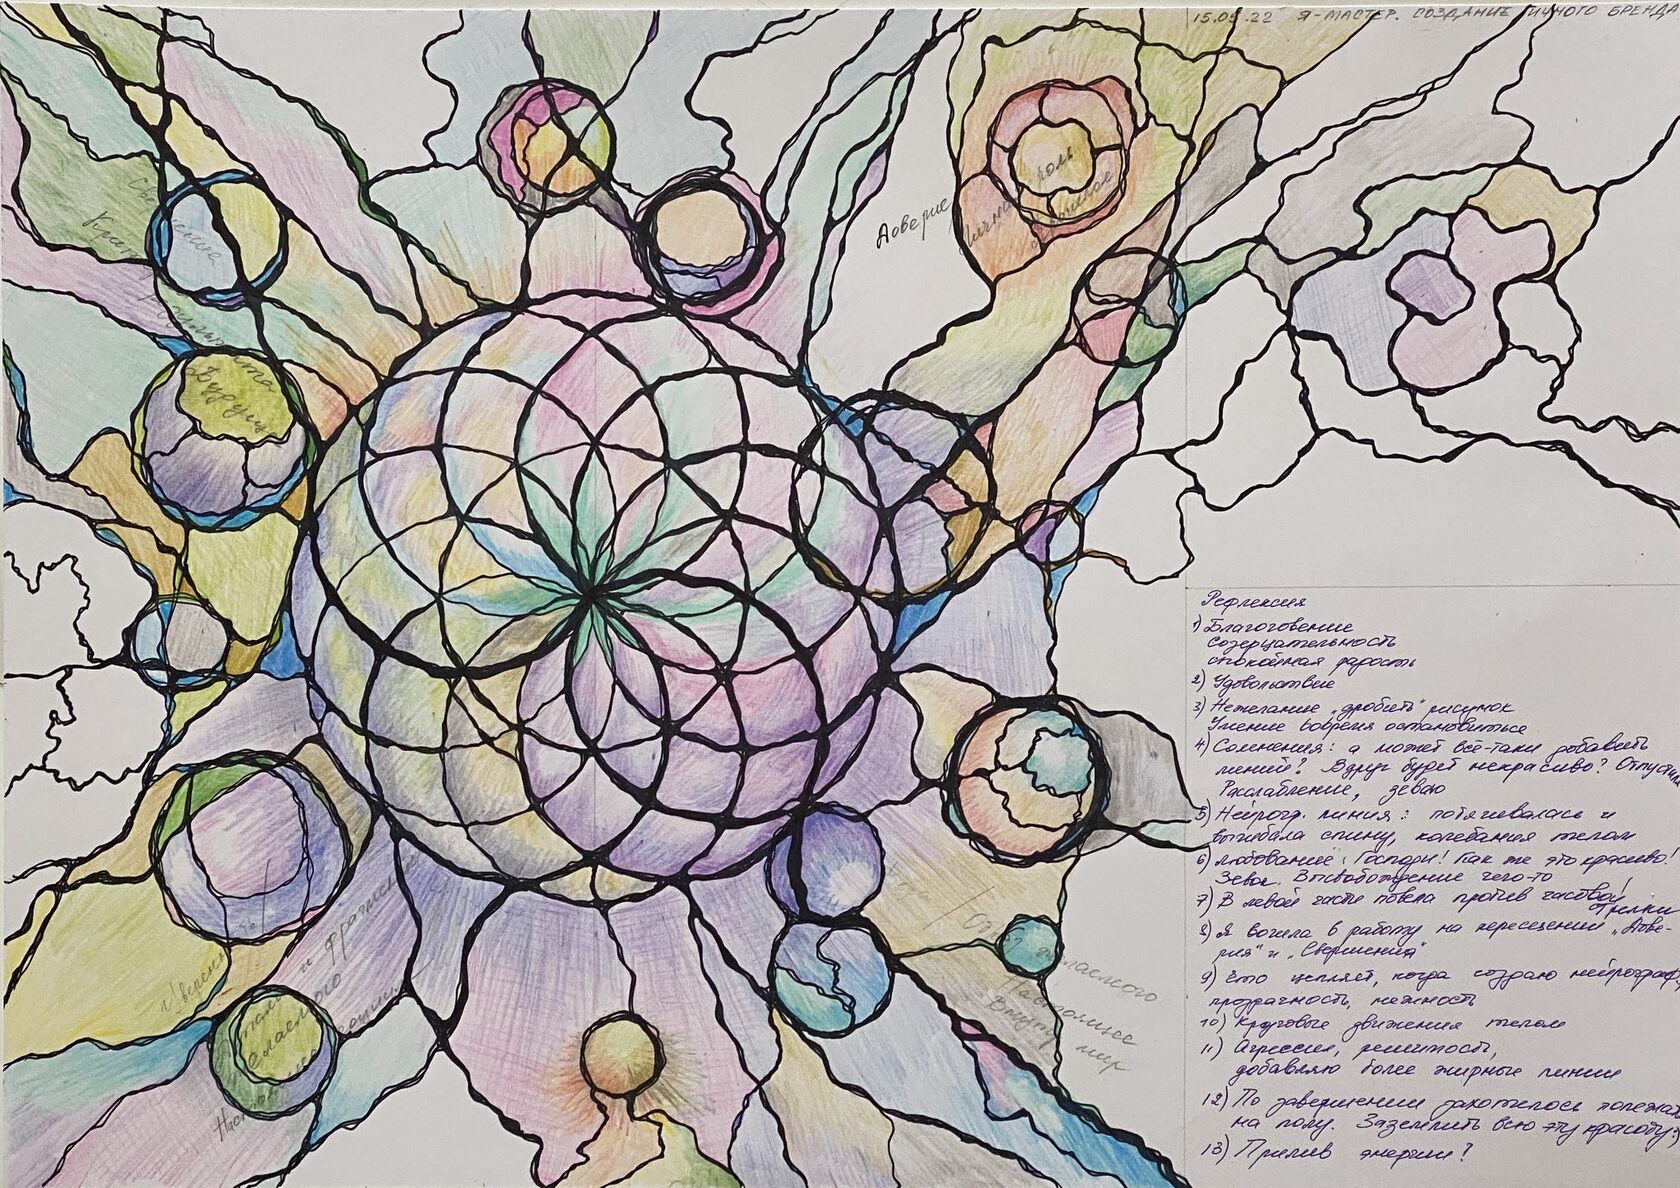 15.05.22 Я-МАСТЕР. СОЗДАНИЕ ЛИЧНОГО БРЕНДА
роль
Доверие
Будущ
и фрагмен
Образ желаемого
Настоящее
Внутр
мир
Рефлексия
1) Благоговение
созерцательность
спокойная радость
2) Удовольствие
3) Нежелание „дробить" рисунок
Умение вовремя остановиться
4) Сомнения: а может всё-таки добавить
линий? Вдруг будет некрасиво? Отпусти
Расслабление, зеваю
5) Нейрогр. линия: потягивалась и
выгибала спину, колебания телом
6) Любование! Господи! Как же это красиво!
Зевок. Высвобождение чего-то
7) В левой части повела против часовой
стрелки
8) Я вошла в работу на пересечении „Дове-
рия" и „Свершения"
9) Что цепляет, когда создаю нейрограф,
прозрачность, нежность
10) Круговые движения телом
11) Агрессия, решимость,
добавляю более жирные линии
12) По завершении захотелось полежать
на полу. Заземлить всю эту красоту:)
13) Прилив энергии!